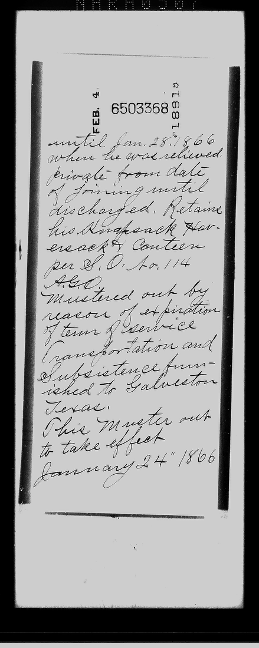 FEB. 4
6503368
1891
until Jan. 28. 1866
when he was relieved
private from date
of joining until
discharged. Retains
his Knapsack Hav-
ersack & Canteen
per S. O. No. 114
A.G.O.
Mustered out by
reason of expiration
of term of service
Transportation and
Subsistence furn-
ished to Galveston
Texas.
This Muster out
to take effect
January 24" 1866